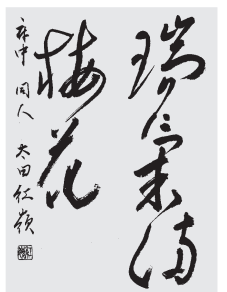 瑞氣満
梅花
府中 同人 太田 紅嶺